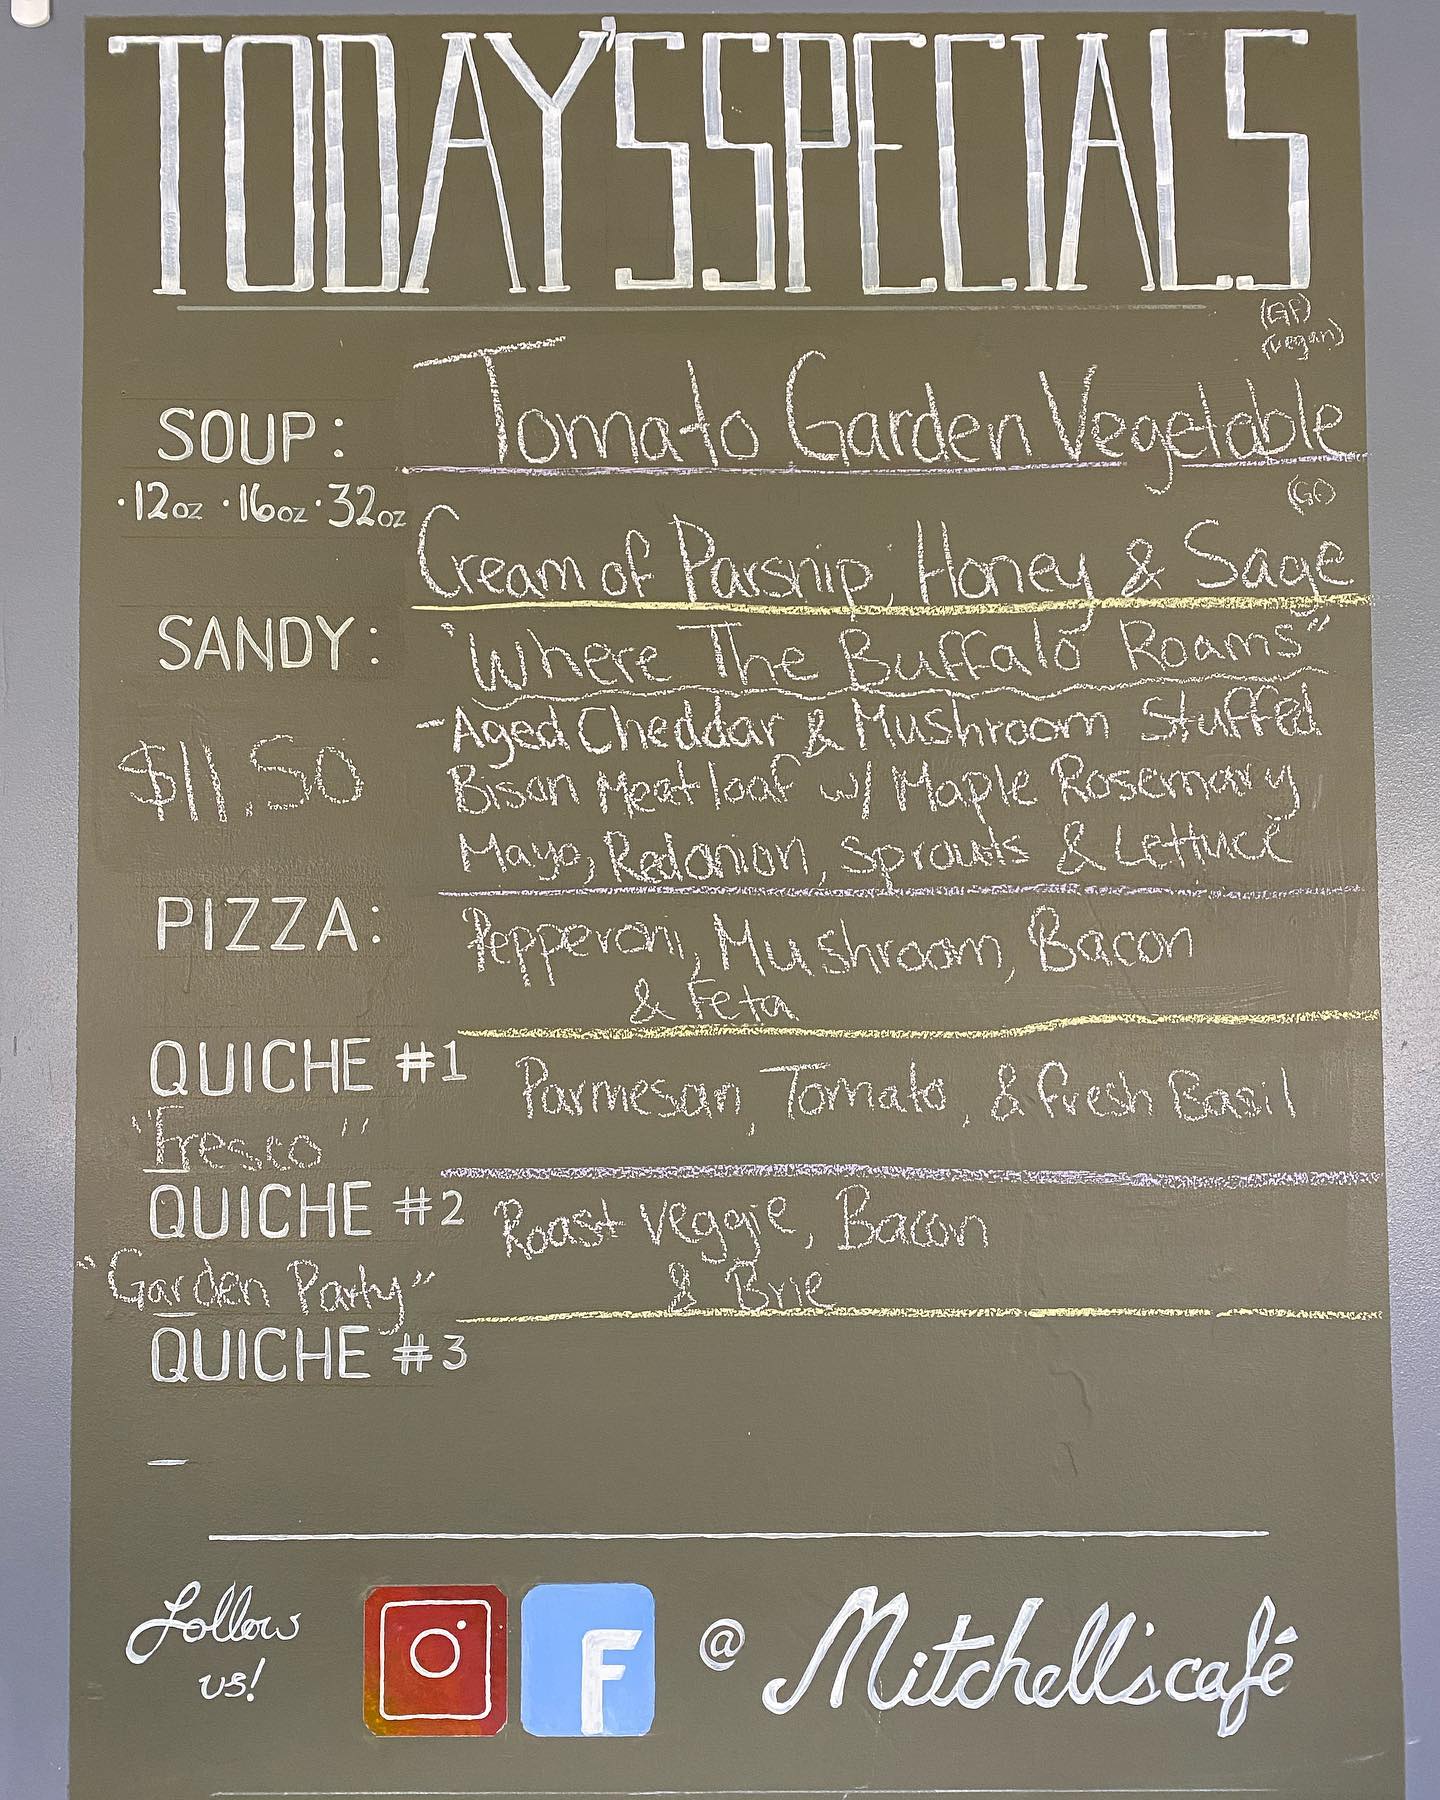 TODAY'S SPECIALS
(GF)
(vegan)
SOUP: Tomato Garden Vegetable
·12oz ·16oz ·32oz
Cream of Parsnip, Honey & Sage
SANDY: "Where The Buffalo Roams"
-Aged Cheddar & Mushroom Stuffed
$11.50
Bison Meatloaf w/ Maple Rosemary
Mayo, Red onion, Sprouts & Lettuce
PIZZA: Pepperoni, Mushroom, Bacon
& Feta
QUICHE #1 Parmesan, Tomato, & Fresh Basil
"Fresco"
QUICHE #2 Roast Veggie, Bacon
"Garden Party" & Brie
QUICHE #3
Follow us! @ Mitchell'scafé